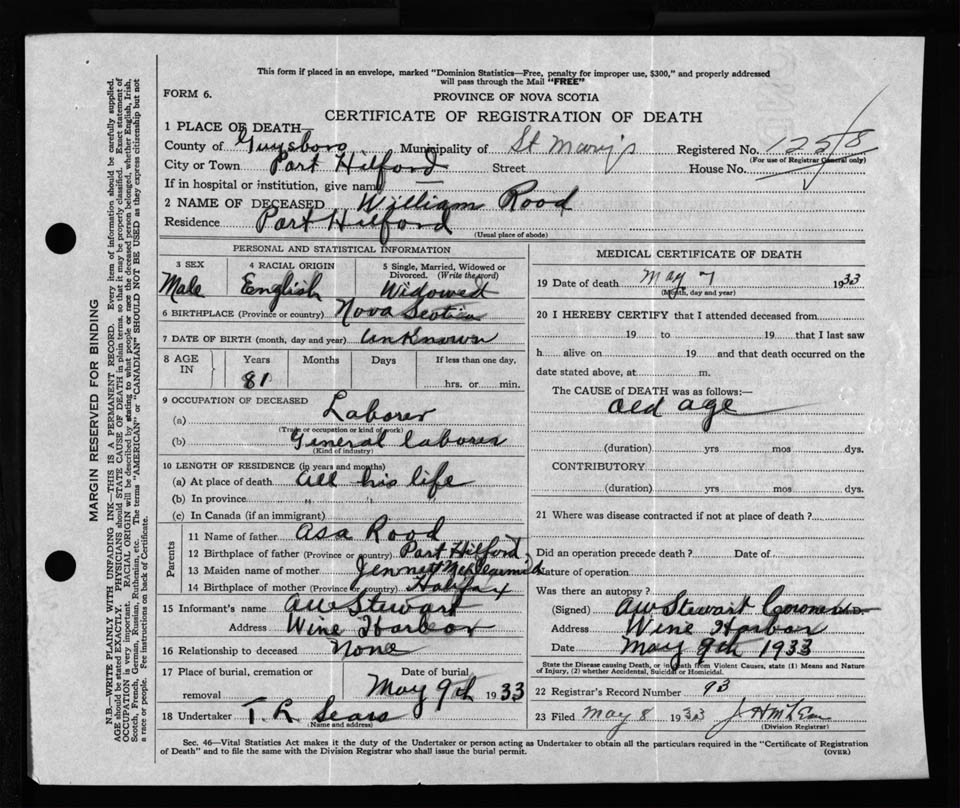 This form if placed in an envelope, marked "Dominion Statistics—Free, penalty for improper use, $300," and properly addressed
will pass through the Mail "FREE"
FORM 6.
PROVINCE OF NOVA SCOTIA
CERTIFICATE OF REGISTRATION OF DEATH
1 PLACE OF DEATH—
County of Guysboro Municipality of St Mary's Registered No. 1258
(For use of Registrar General only)
City or Town Port Hilford Street House No.
If in hospital or institution, give name —
2 NAME OF DECEASED William Rood
Residence Port Hilford
(Usual place of abode)
PERSONAL AND STATISTICAL INFORMATION
3 SEX 4 RACIAL ORIGIN 5 Single, Married, Widowed or
Divorced. (Write the word)
Male English Widowed
6 BIRTHPLACE (Province or country) Nova Scotia
7 DATE OF BIRTH (month, day and year) Unknown
8 AGE IN Years Months Days If less than one day,
81 hrs. or min.
9 OCCUPATION OF DECEASED
(a) Laborer
(Trade or occupation or kind of work)
(b) General laborer
(Kind of industry)
10 LENGTH OF RESIDENCE (in years and months)
(a) At place of death All his life
(b) In province " "
(c) In Canada (if an immigrant)
Parents
11 Name of father Asa Rood
12 Birthplace of father (Province or country) Port Hilford
13 Maiden name of mother
14 Birthplace of mother (Province or country) Halifax
15 Informant's name AW Stewart
Address Wine Harbor
16 Relationship to deceased None
17 Place of burial, cremation or removal Date of burial
May 9th 1933
18 Undertaker T. R Sears
(Name and address)
MEDICAL CERTIFICATE OF DEATH
19 Date of death May 7 1933
(Month, day and year)
20 I HEREBY CERTIFY that I attended deceased from
19 to 19 that I last saw
h alive on 19 and that death occurred on the
date stated above, at m.
The CAUSE of DEATH was as follows:—
old age
(duration) yrs mos dys.
CONTRIBUTORY
(duration) yrs mos dys.
21 Where was disease contracted if not at place of death?
Did an operation precede death? Date of
Nature of operation
Was there an autopsy?
(Signed) AW Stewart Coroner
Address Wine Harbor
Date May 9th 1933
State the Disease causing Death, or in death from Violent Causes, state (1) Means and Nature
of Injury, (2) whether Accidental, Suicidal or Homicidal.
22 Registrar's Record Number 93
23 Filed May 8 1933
(Division Registrar)
Sec. 46—Vital Statistics Act makes it the duty of the Undertaker or person acting as Undertaker to obtain all the particulars required in the "Certificate of Registration
of Death" and to file the same with the Division Registrar who shall issue the burial permit. (OVER)
MARGIN RESERVED FOR BINDING
N.B.—WRITE PLAINLY WITH UNFADING INK—THIS IS A PERMANENT RECORD. Every item of information should be carefully supplied.
AGE should be stated EXACTLY. PHYSICIANS should STATE CAUSE OF DEATH in plain terms, so that it may be properly classified. Exact statement of
OCCUPATION is very important. RACIAL ORIGIN will be described by stating to what people or race the deceased person belonged, whether English, Irish,
Scotch, French, German, Russian, Ruthenian, etc. The terms "AMERICAN" or "CANADIAN" SHOULD NOT BE USED as they express citizenship but not
a race or people. See instructions on back of Certificate.